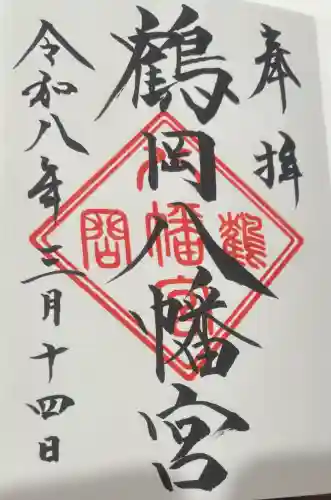 奉拝
鶴岡八幡宮
令和八年三月十四日
八
鶴 幡 岡
宮